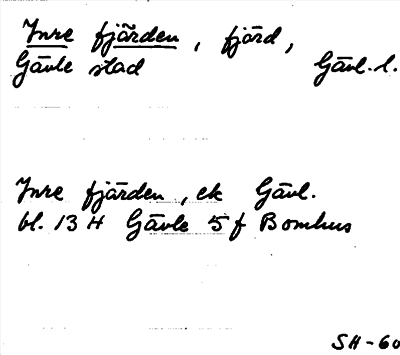 Inre fjärden, fjärd,
Gävle stad Gävl. l.
Inre fjärden, ek Gävl.
bl. 13 H Gävle 5 f Bomhus
SH-60